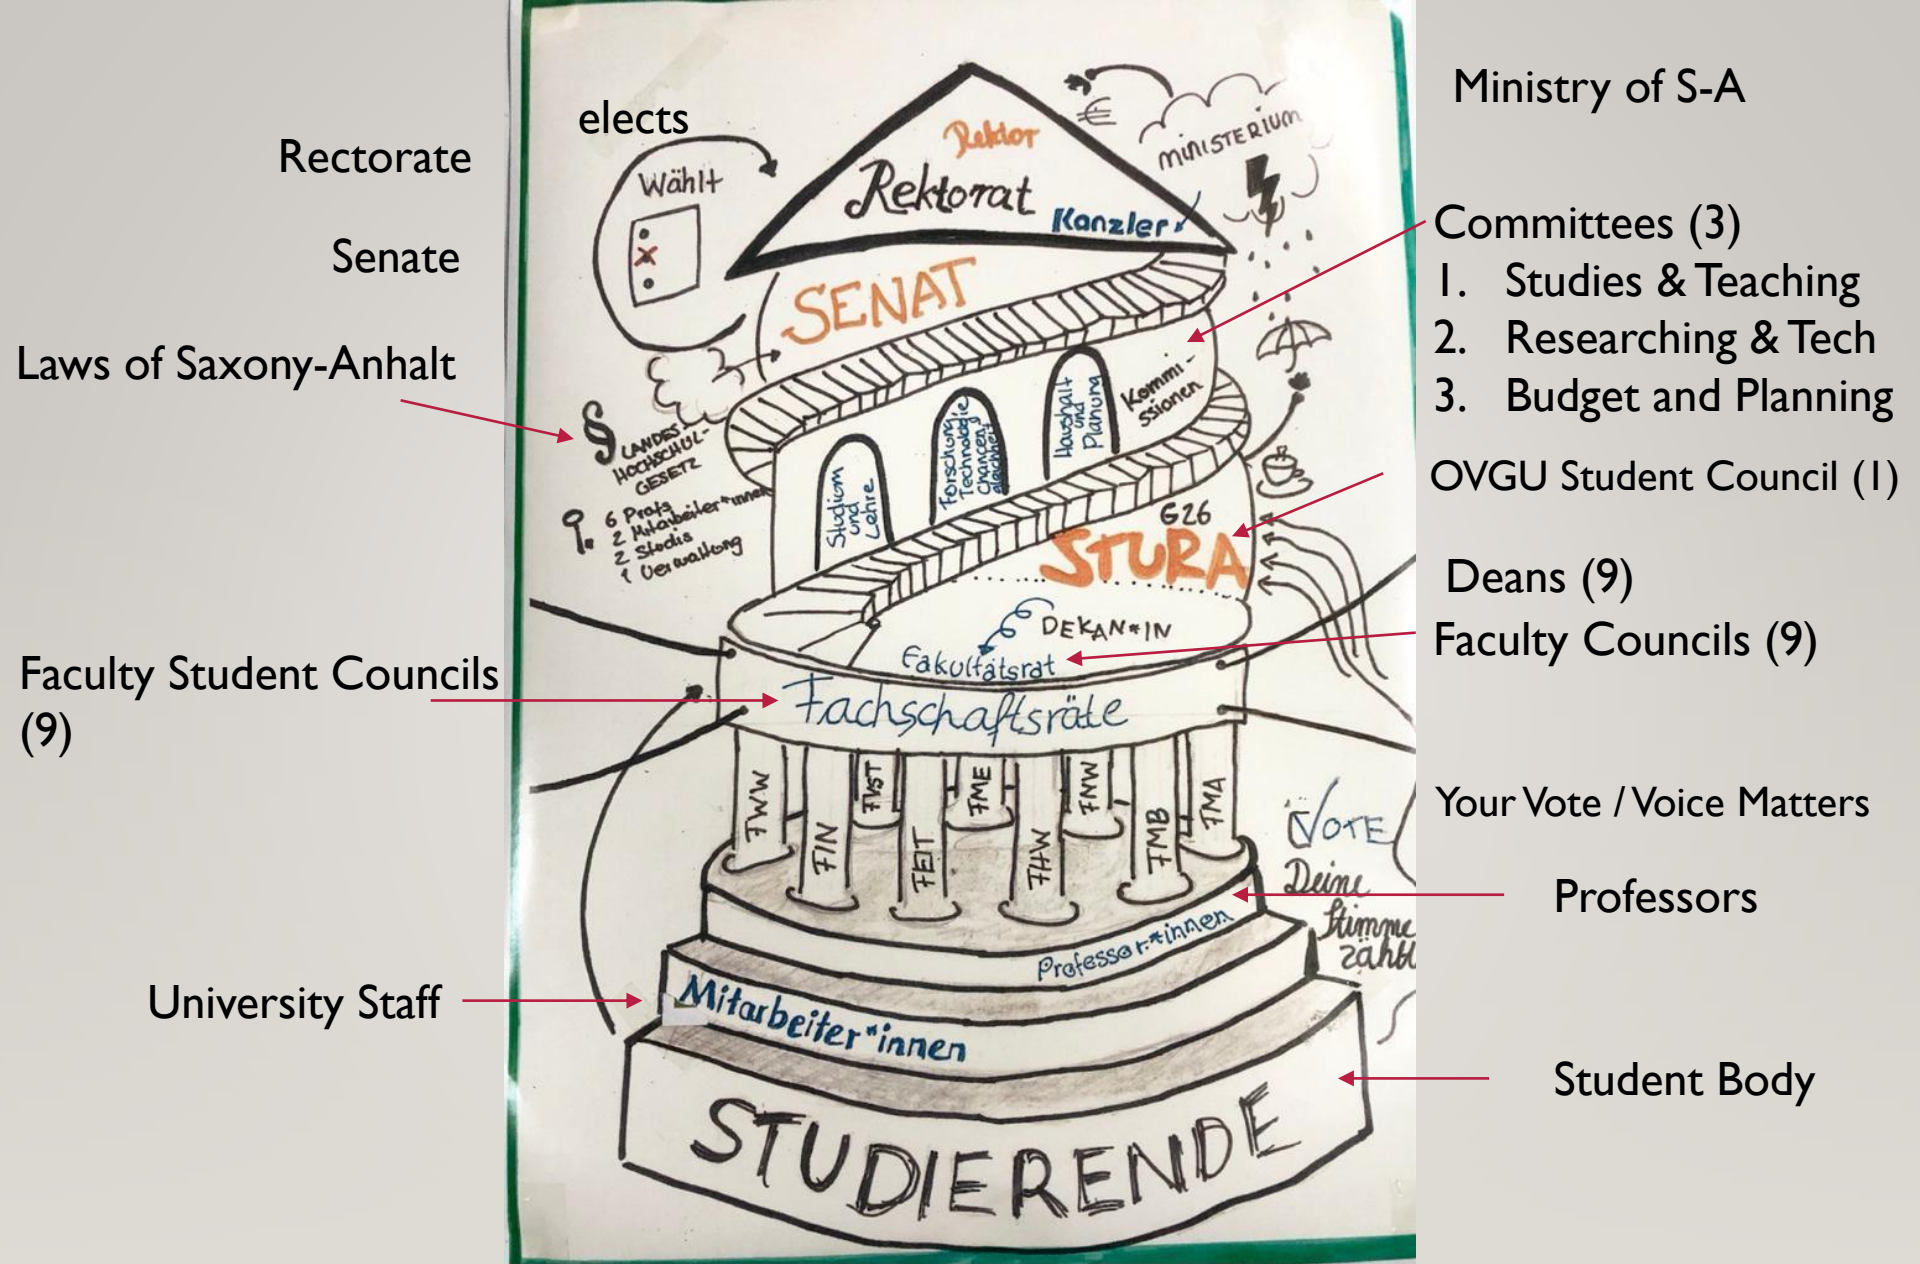 elects
Rectorate
Senate
Laws of Saxony-Anhalt
Faculty Student Councils
(9)
University Staff
Wählt
Rektor
Rektorat
Kanzler
€
MINISTERIUM
SENAT
§
LANDES-
HOCHSCHUL-
GESETZ
6 Profs
2 Mitarbeiter*innen
2 Studis
1 Verwaltung
Studium
und
Lehre
Forschung
Technologie
Chancen
gleichheit
Haushalt
und
Planung
Kommi-
ssionen
G26
STURA
DEKAN*IN
Fakultätsrat
Fachschaftsräte
FWW
FIN
FVST
FEIT
FME
FHW
FNW
FMB
FMA
VOTE
Deine
Stimme
zählt
Professor*innen
Mitarbeiter*innen
STUDIERENDE
Ministry of S-A
Committees (3)
1. Studies & Teaching
2. Researching & Tech
3. Budget and Planning
OVGU Student Council (1)
Deans (9)
Faculty Councils (9)
Your Vote / Voice Matters
Professors
Student Body